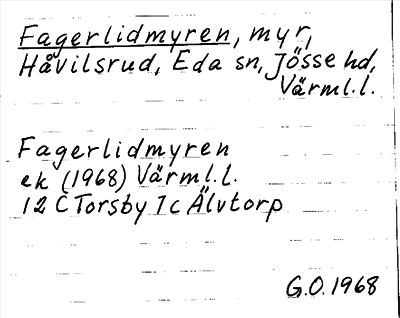 Fagerlidmyren, myr,
Håvilsrud, Eda sn, Jösse hd,
Värml.l.
Fagerlidmyren
ek (1968) Värml.l.
12 C Torsby 7c Älvtorp
G.O. 1968